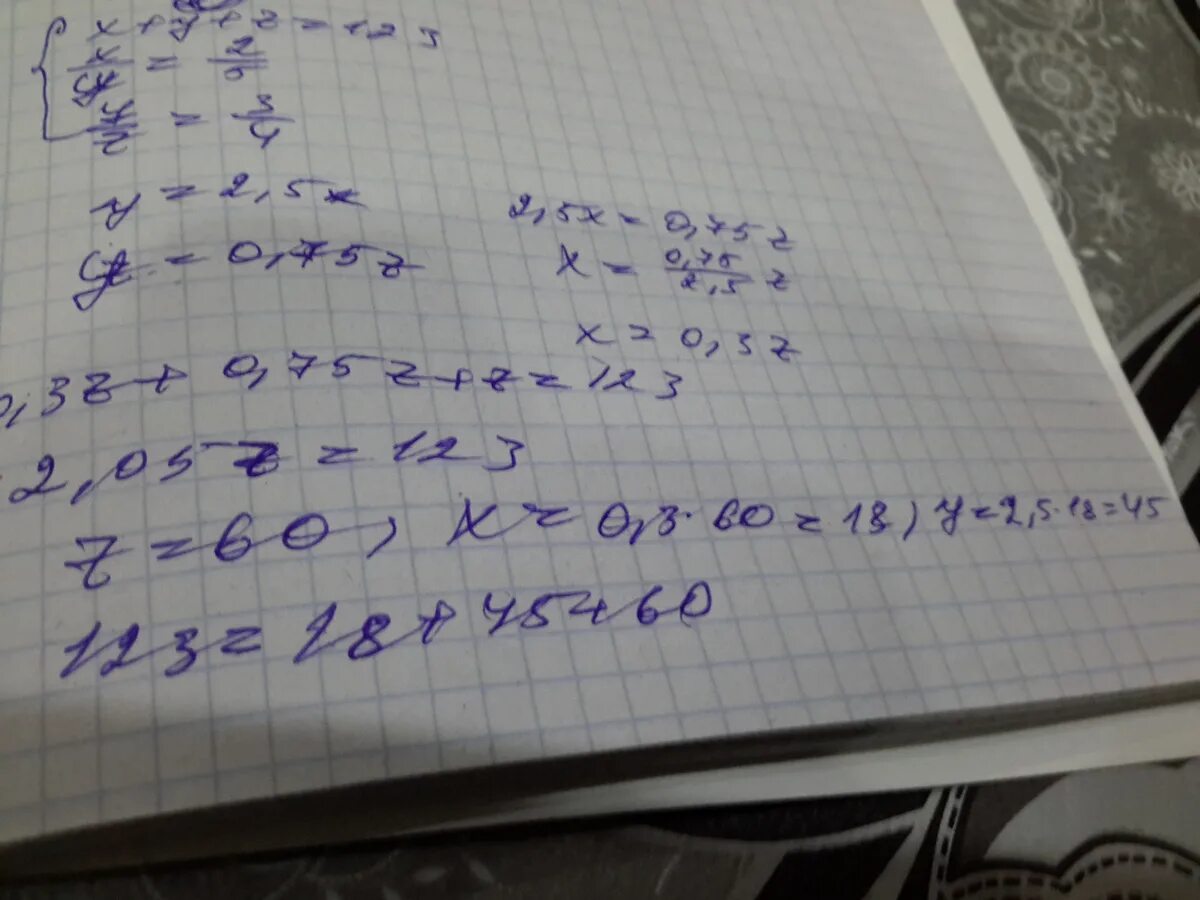 x + y + z = 123
x/y = 2/5
y/z = 3/4
y = 2,5x
y = 0,75z
2,5x = 0,75z
x = 0,75/2,5 z
x = 0,3z
0,3z + 0,75z + z = 123
2,05z = 123
z = 60, x = 0,3·60 = 18, y = 2,5·18 = 45
123 = 18 + 45 + 60